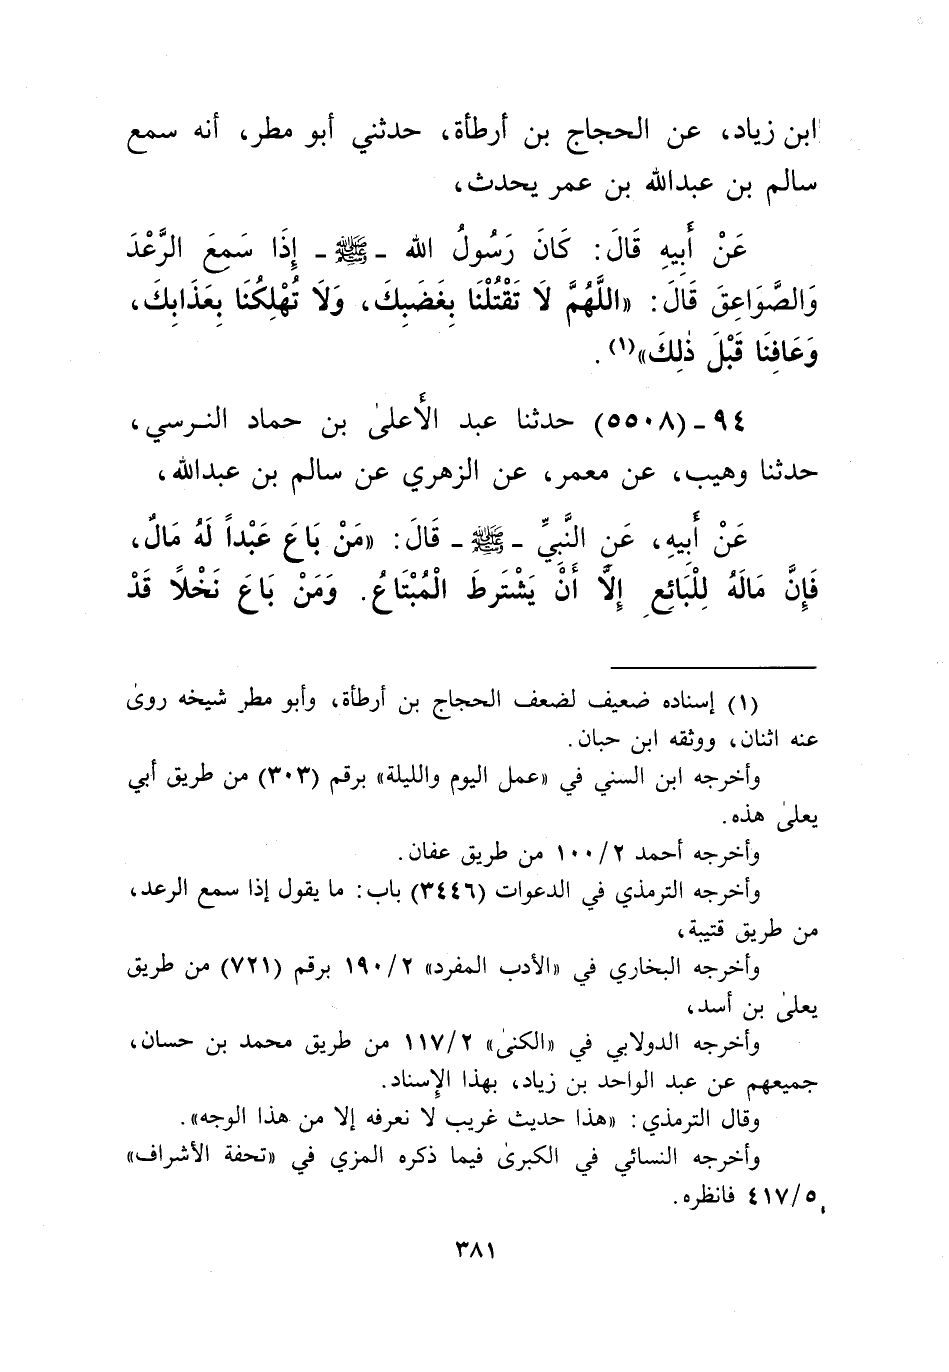 ابن زياد، عن الحجاج بن أرطأة، حدثني أبو مطر، أنه سمع
سالم بن عبدالله بن عمر يحدث،
عَنْ أَبِيهِ قَالَ: كَانَ رَسُولُ الله ـ ﷺ ـ إِذَا سَمِعَ الرَّعْدَ
وَالصَّوَاعِقَ قَالَ: «اللَّهُمَّ لَا تَقْتُلْنَا بِغَضَبِكَ، وَلَا تُهْلِكْنَا بِعَذَابِكَ،
وَعَافِنَا قَبْلَ ذٰلِكَ»(١).
٩٤ ـ (٥٥٠٨) حدثنا عبد الأَعلىٰ بن حماد النرسي،
حدثنا وهيب، عن معمر، عن الزهري عن سالم بن عبدالله،
عَنْ أَبِيهِ، عَنِ النَّبِيِّ ـ ﷺ ـ قَالَ: «مَنْ بَاعَ عَبْداً لَهُ مَالٌ،
فَإِنَّ مَالَهُ لِلْبَائِعِ إِلَّا أَنْ يَشْتَرِطَ الْمُبْتَاعُ. وَمَنْ بَاعَ نَخْلًا قَدْ
(١) إسناده ضعيف لضعف الحجاج بن أرطأة، وأبو مطر شيخه روىٰ
عنه اثنان، ووثقه ابن حبان.
وأخرجه ابن السني في «عمل اليوم والليلة» برقم (٣٠٣) من طريق أبي
يعلىٰ هذه.
وأخرجه أحمد ٢/١٠٠ من طريق عفان.
وأخرجه الترمذي في الدعوات (٣٤٤٦) باب: ما يقول إذا سمع الرعد،
من طريق قتيبة،
وأخرجه البخاري في «الأدب المفرد» ٢/١٩٠ برقم (٧٢١) من طريق
يعلىٰ بن أسد،
وأخرجه الدولابي في «الكنىٰ» ٢/١١٧ من طريق محمد بن حسان،
جميعهم عن عبد الواحد بن زياد، بهذا الإِسناد.
وقال الترمذي: «هذا حديث غريب لا نعرفه إلا من هذا الوجه».
وأخرجه النسائي في الكبرىٰ فيما ذكره المزي في «تحفة الأشراف»
٥/٤١٧ فانظره.
٣٨١